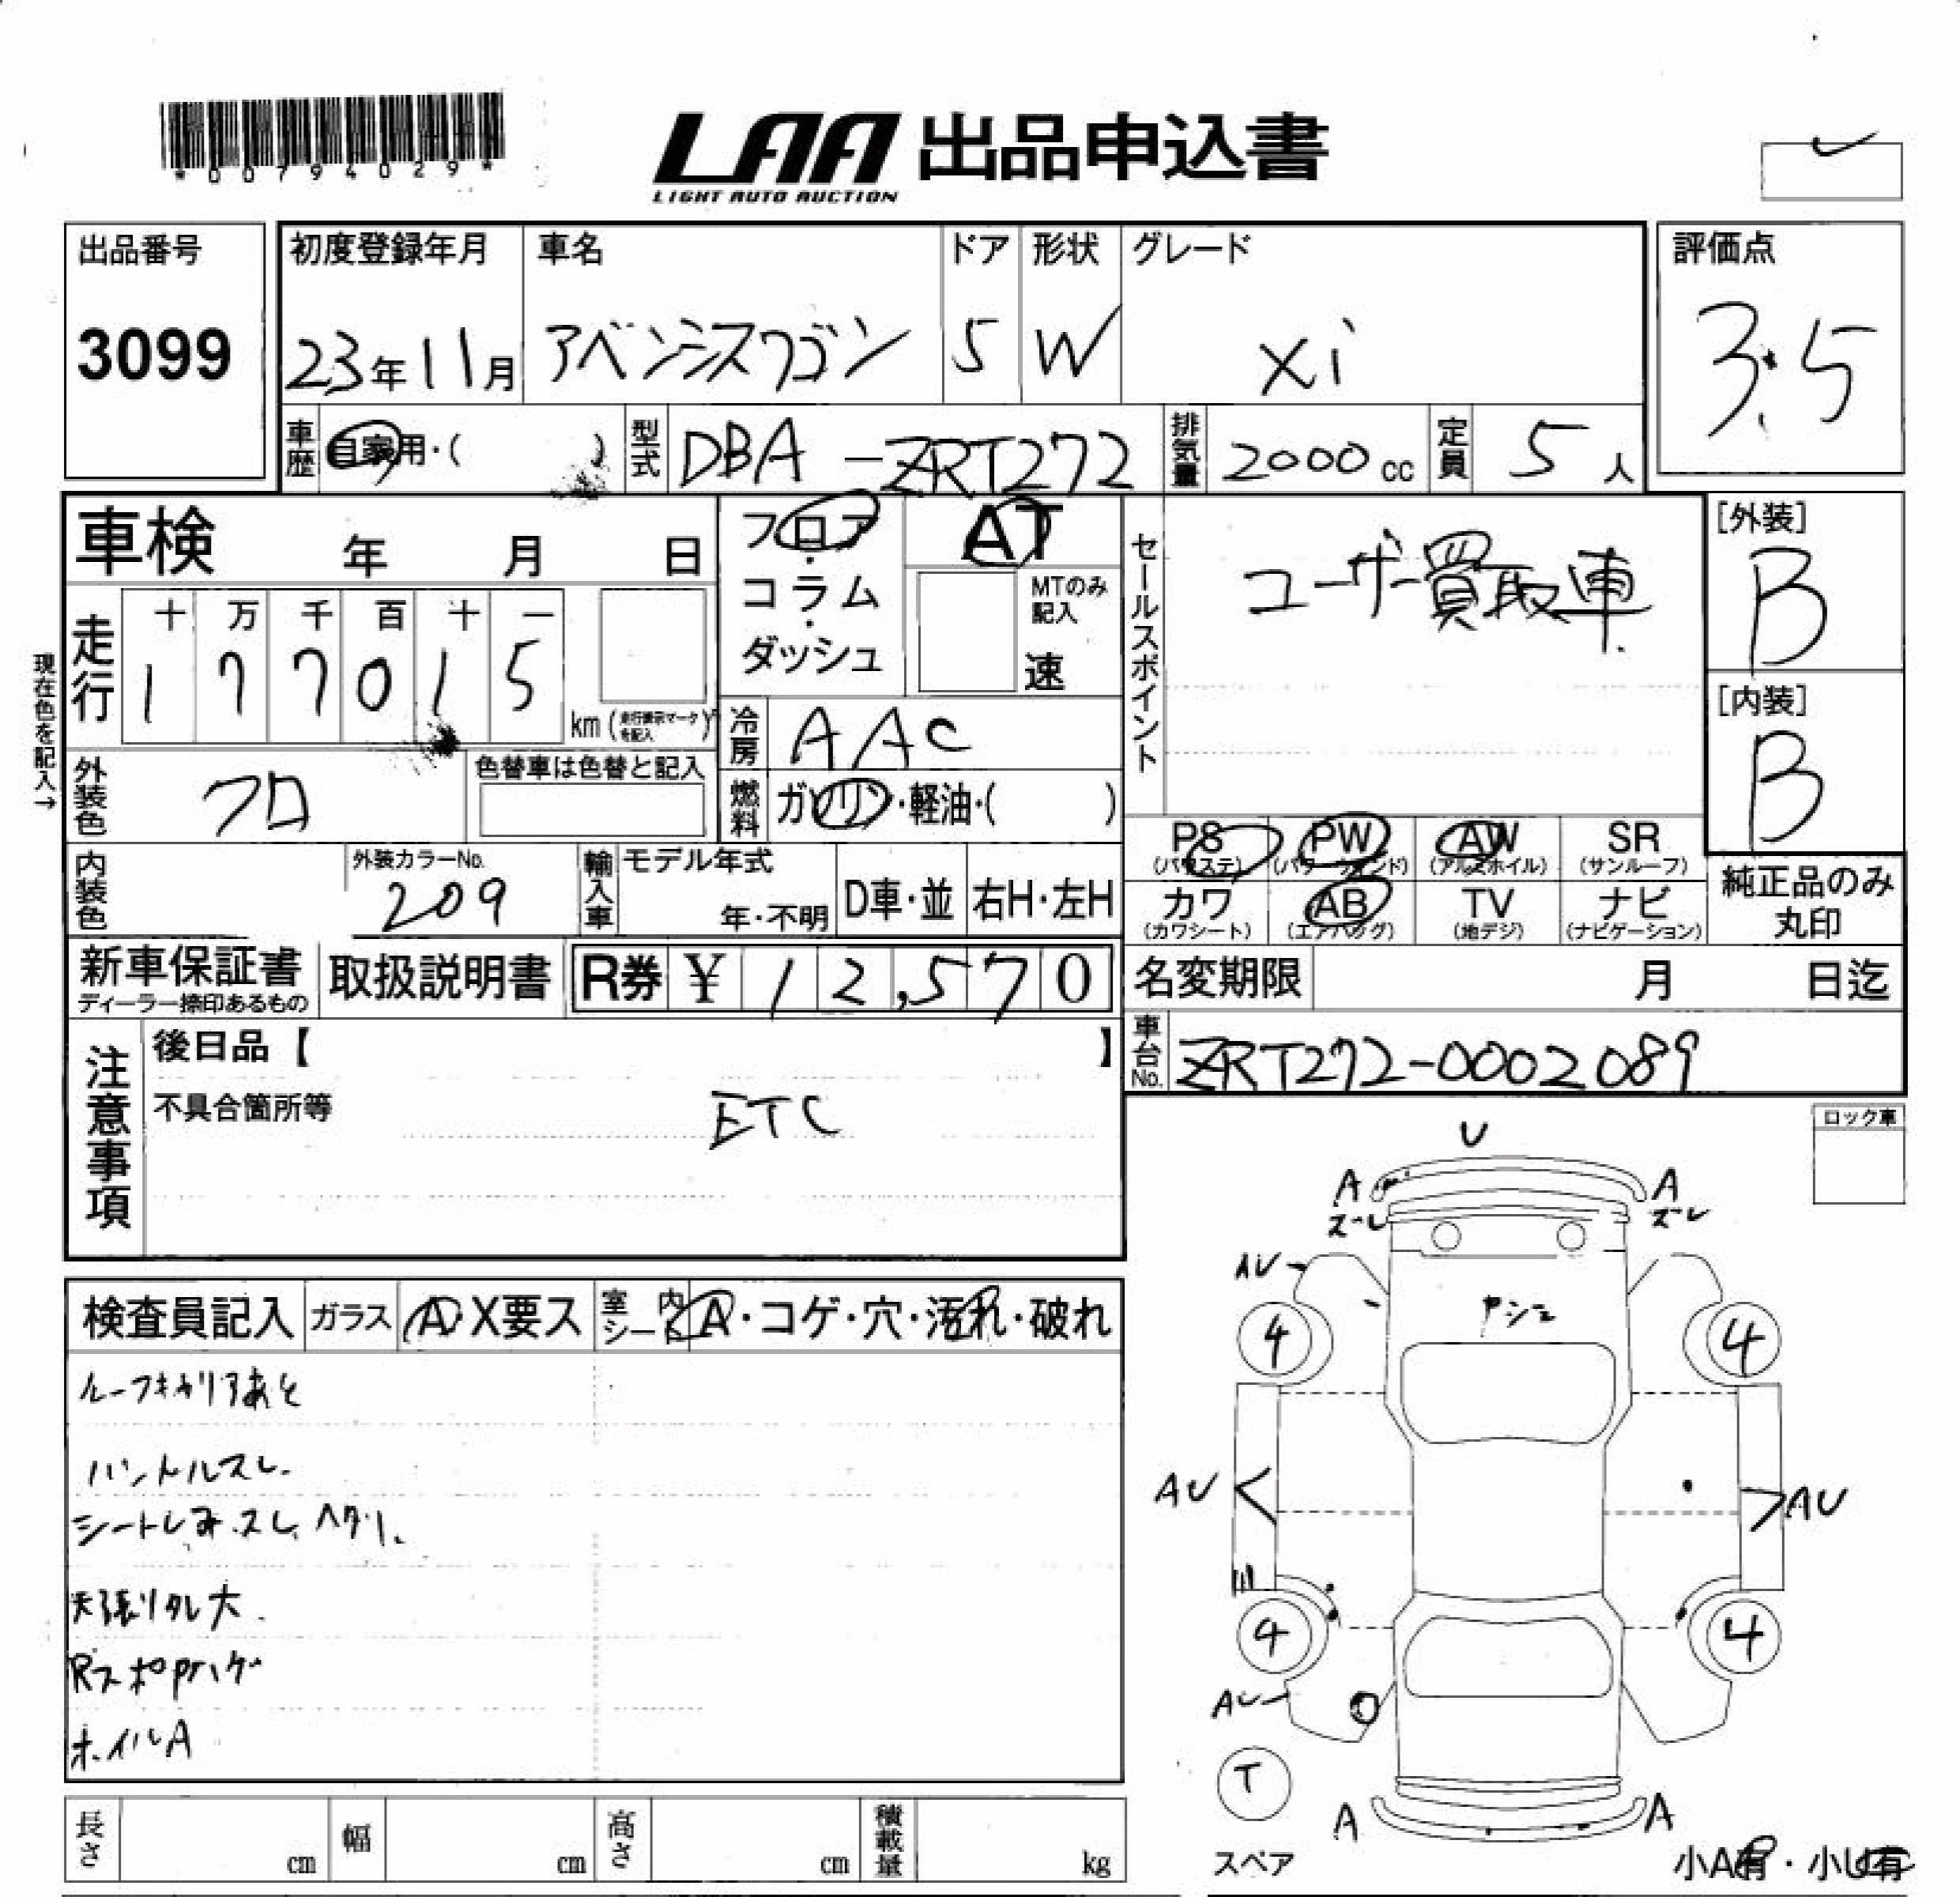 *00794029*
LAA 出品申込書
LIGHT AUTO AUCTION
出品番号
3099
初度登録年月
23年11月
車名
アベンシスワゴン
ドア
5
形状
W
グレード
Xi
評価点
3.5
車歴
自家用・( )
型式
DBA-ZRT272
排気量
2000cc
定員
5人
車検 年 月 日
フロア・コラム・ダッシュ
AT
MTのみ記入
速
セールスポイント
ユーザー買取車
[外装]
B
[内装]
B
現在色を記入→
走行
十 万 千 百 十 一
1 7 7 0 1 5
km(走行表示マークを記入)
冷房
AAC
外装色
クロ
色替車は色替と記入
燃料
ガソリン・軽油・( )
PS (パワステ)
PW (パワーウィンド)
AW (アルミホイル)
SR (サンルーフ)
カワ (カワシート)
AB (エアバッグ)
TV (地デジ)
ナビ (ナビゲーション)
純正品のみ丸印
内装色
外装カラーNo.
209
輸入車
モデル年式
年・不明
D車・並
右H・左H
新車保証書
ディーラー捺印あるもの
取扱説明書
R券 ¥ 12,570
名変期限 月 日迄
車台No.
ZRT272-0002089
注意事項
後日品【 】
不具合箇所等
ETC
ロック車
検査員記入
ガラス
A・X要ス
室内シート
A・コゲ・穴・汚れ・破れ
ルーフキャリアあと
ハンドルスレ
シートしみ.スレ.ヘタリ.
天張りタレ大.
RスポPハゲ
ホイルA
U
A
ズレ
A
ズレ
AU
4
4
AU
AU
4
4
AU
T
スペア
A
A
小A有・小U有
長さ cm
幅 cm
高さ cm
積載量 kg